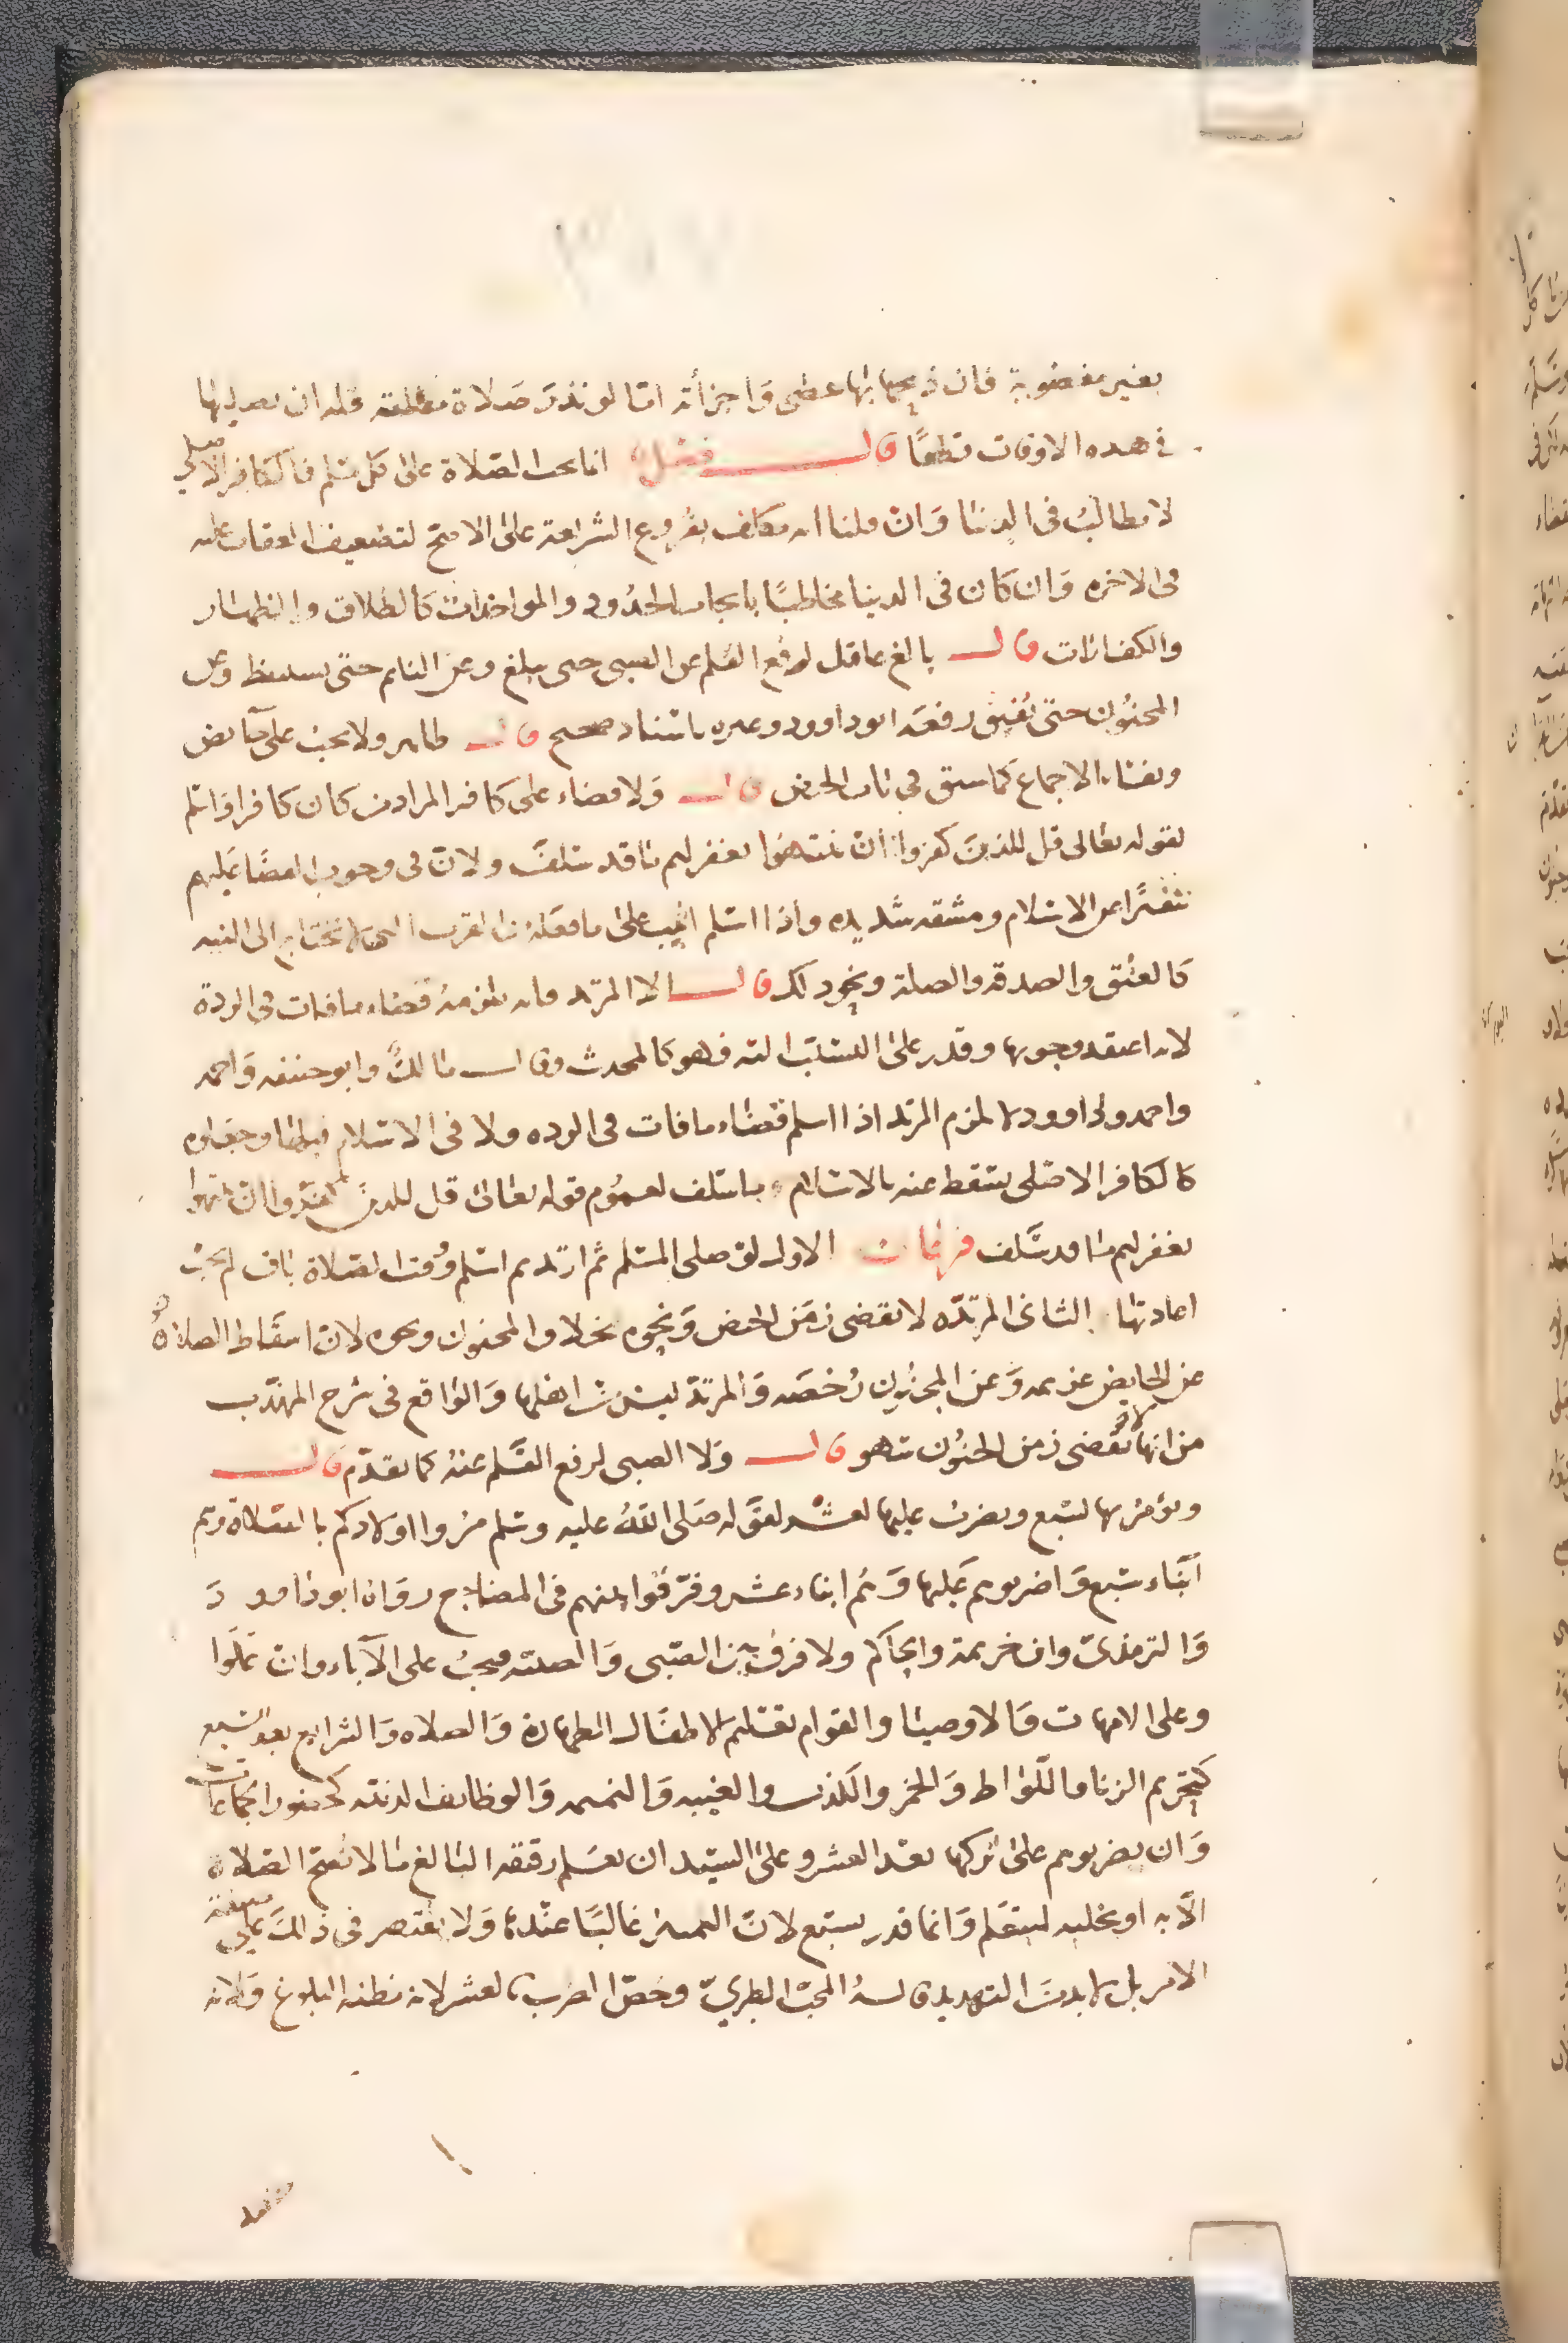 بغير مغصوبة فان ذبحها بها عصى وَاجزأته امّا لو نذرَ صَلاة مطلقة فله ان يصليها
في هده الاوقات قطعًا قال فصل انما تجب الصَلاة على كل مسلم فالكافر الاصلي
لا يطالبُ في الدنيا وَان قلنا انه مكلف بفروع الشريعة على الاصح لتضعيف العقاب عليه
في الاخره وَان كان في الدينا مخاطبًا بايجاب الحدُود والمواخذات كالطلاق والظهار
والكفارات قال بالغ عاقل لرفع القلم عن الصبي حتى يبلغ وعن النايم حتى يستيقظ وعن
المجنُون حتى يُفيق رفعَه ابو داوود وغيره باسناد صحيح قال طاهر ولا يجب على حَايض
ونفساء الاجماع كما سبق في باب الحيض قال وَلا قضاء على كافر المراد من كان كافرا فاسلم
لقوله تعالى قل للذين كفروا ان ينتهوا يغفر لهم ما قد سَلفَ ولان في وجوب القضا عَليهم
تنفيرًا عن الاسلام ومشقه شديده واذا اسلم اثيب على ما فعَلهُ من القرب التي لا تحتاج الى النيه
كالعتق والصدقه والصلة ونحو ذلك قال الا المرتد فانه يلزمهُ قضاء ما فات في الردة
لانه اعتقد وجوبها وقدر على التسَبّب اليه فهو كالمحدث وقال مَالكٌ وابو حنيفه وَاحمد
واحمد وداوود لا يلزم المرتد اذا اسلم قضَاء ما فات في الرده ولا في الاسْلام قبلها وجعلوه
كالكافر الاصْلي يسَقط عنه بالاسلام ما سلف لعمُوم قوله تعالى قل للذين كفَروا ان ينتهوا
يغفر لهم مَا قد سَلف فرعَان الاول لو صلى المسلم ثم ارتد ثم اسْلم وَوقت الصَلاة باق لم يجب
اعادتها الثاني المرتدّه لا تقضي زمَن الحيض وَنحوه بخلاف المجنون ونحوه لانّ اسقَاط الصلاةُ
عن الحايض عزيمه وَعن المجنُون رُخصَه وَالمرتد ليسَ من اهلها وَالوَاقع في شرح المهذّب
من انها لا تُقضى زمن الجنُون سَهو قال وَلا الصبي لرفع القَلم عنهُ كما تقدّم قال
ويؤمرُ بها لسَبع ويضربُ عليها لعشْر لقوَله صَلى اللهُ عليه وسَلم مُروا اولادكم بالصَلاة وهم
اَبنَاء سَبع وَاضربوهم عَليها وَهُم ابناء عشر وفرّقوا بينهم في المضاجع روَاه ابو داوو دَ
وَالترمذيّ وابن خزيمة والحاكم ولا فرق بين الصّبي وَالصبيه ويجبُ على الآباء وان عَلَوا
وعلى الامهات وَالاوصيَا والقوام تعليم الاطفَال الطهارة وَالصلاه وَالشرايع بعد السَبع
كتحريم الزنا واللّوَاط وَالخمر والكذب والغيبه وَالنميمه وَالوظايف الدينيّه كحضور الجَماعَات
وَان يضربوهم على تركها بعد العشر وعلى السَيّد ان يعَلم رقيقه البَالغ مَا لا تصح الصَلاة
الاَّ به او يخليه ليتعَلم وَانما قدر بسَبع لانّ التمييز غالبًا عنْدهَا وَلا يقتصر في ذَالكَ عَلى صيغة
الامر بل لا بد منَ التهديد قالهُ المحب الطبريّ وخصّ الضرب بالعشر لانه مظنه البلوغ وَلانه